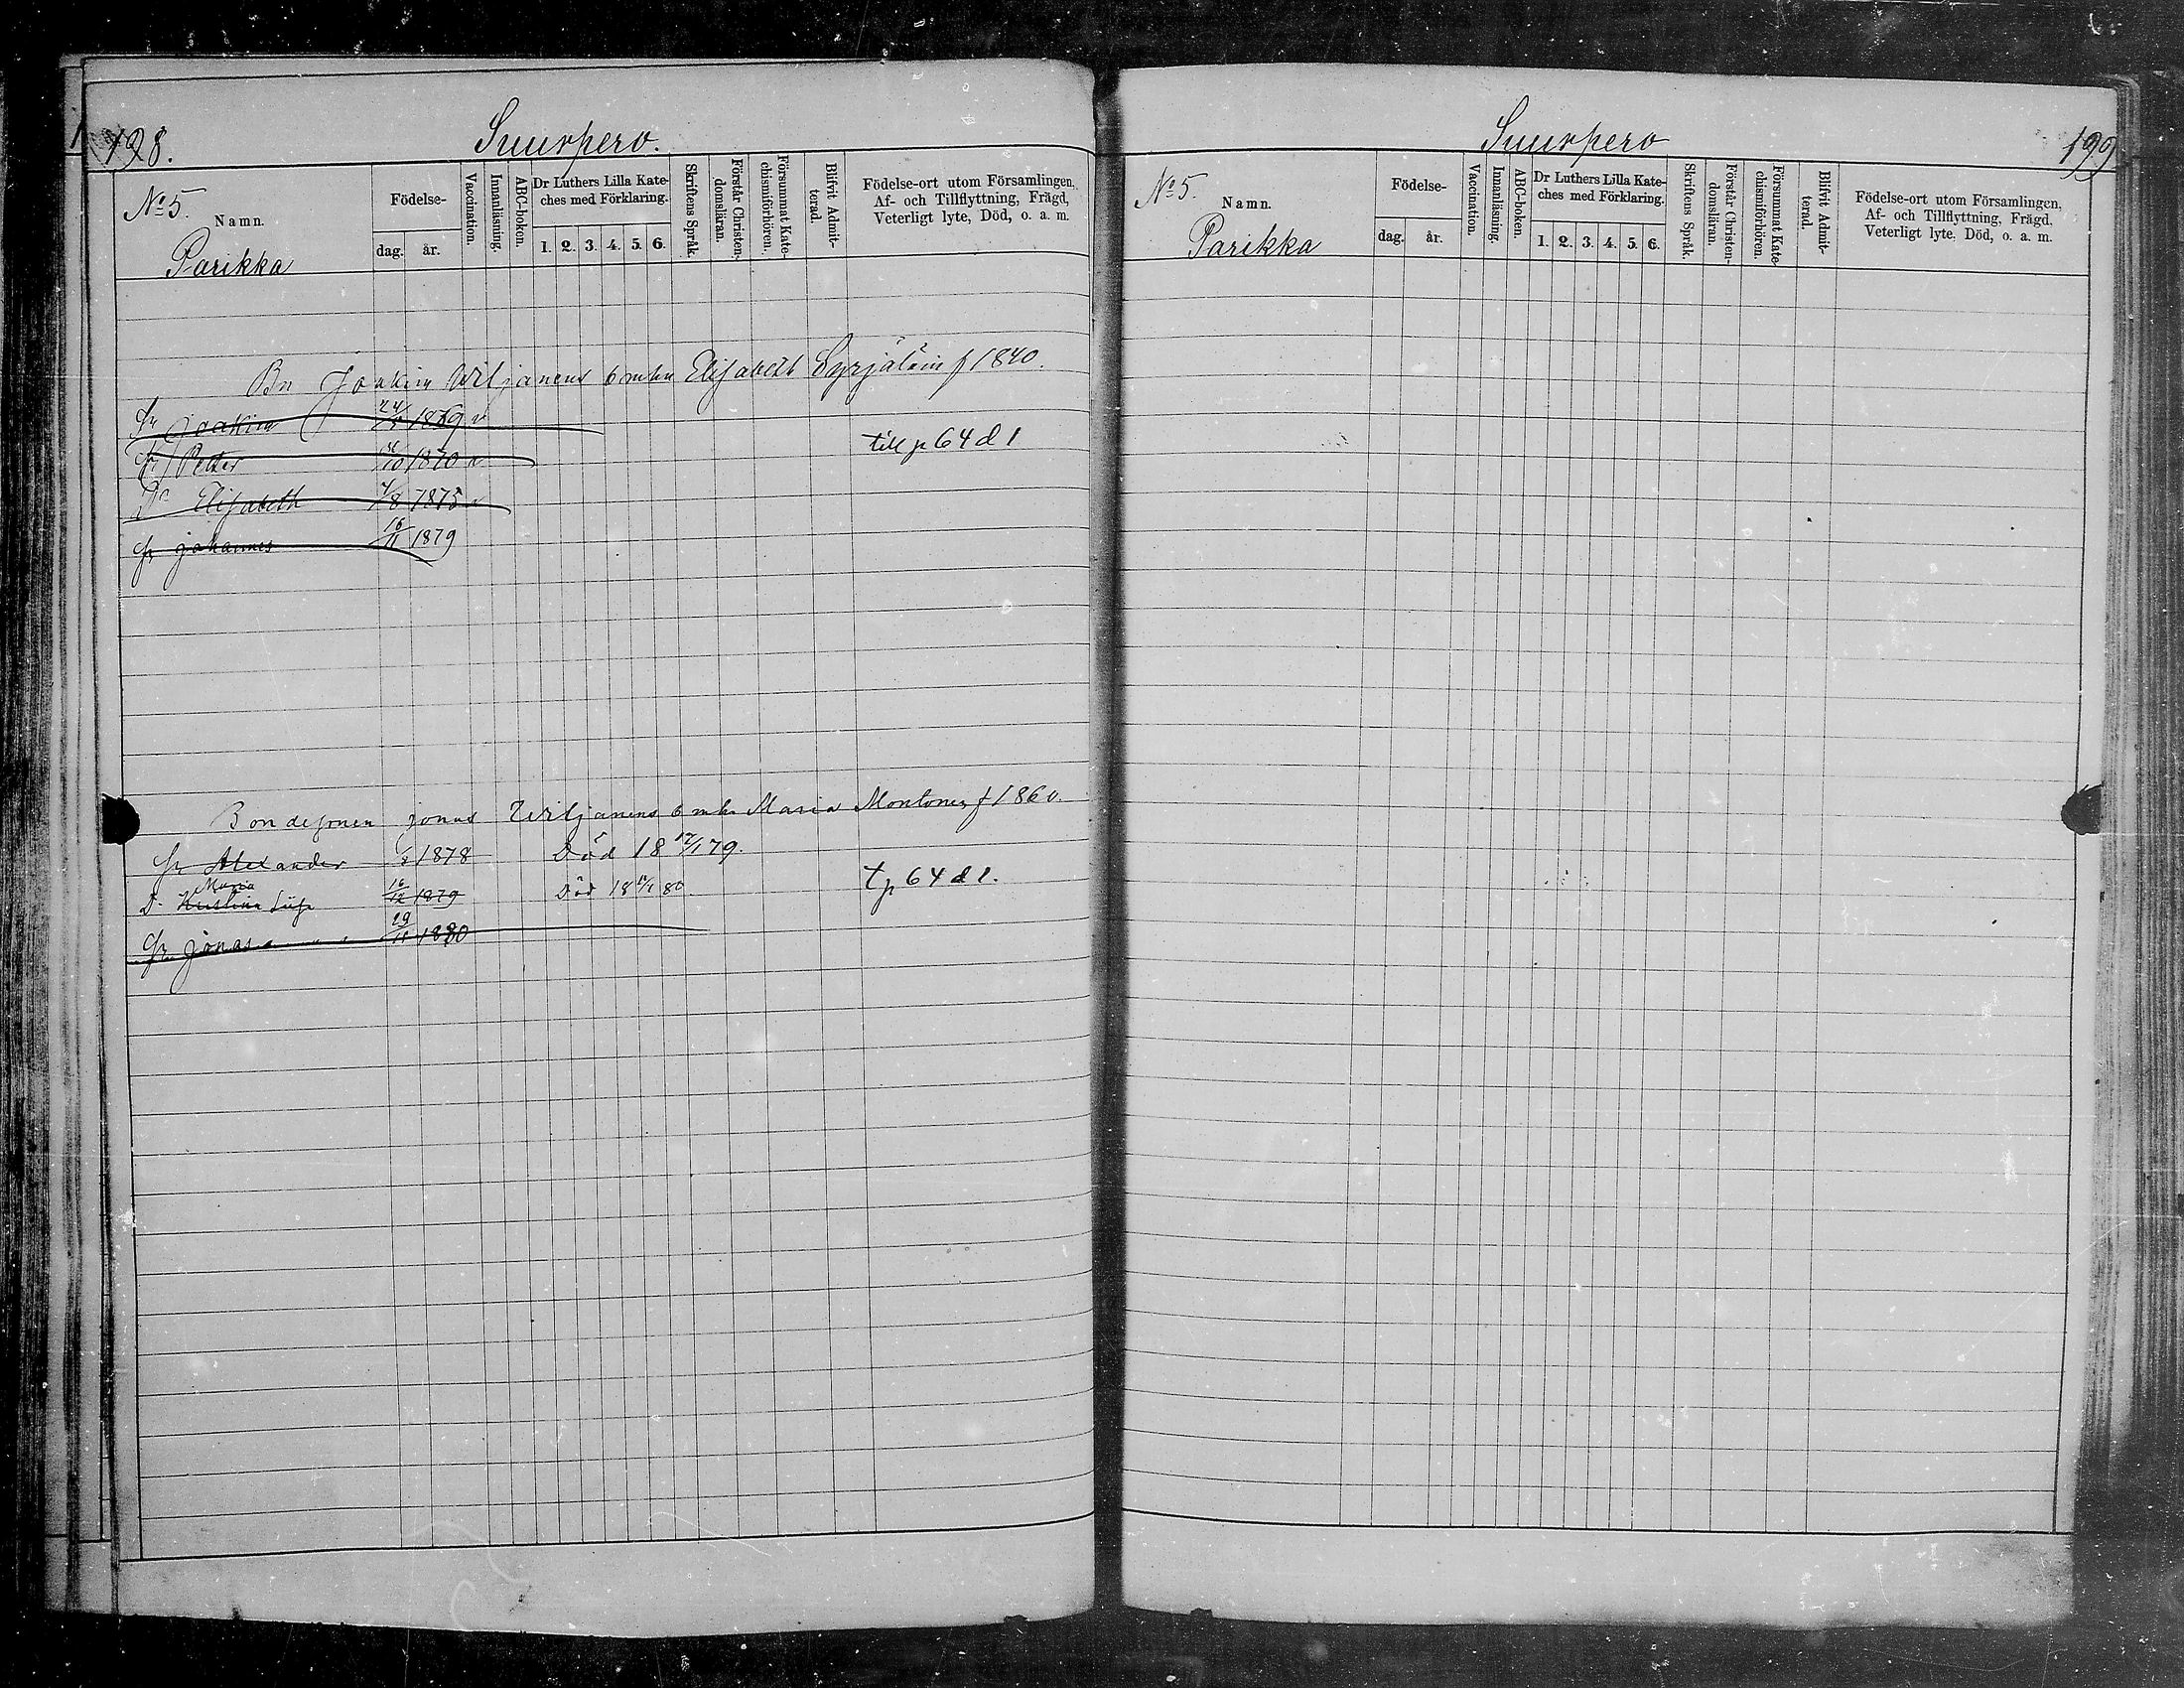 198.
Suurpero.
No 5.
Namn.
Parikka
Födelse-
dag. år.
Vaccination.
Innanläsning.
ABC-boken.
Dr Luthers Lilla Kate-
ches med Förklaring.
1. 2. 3. 4. 5. 6.
Skriftens Språk.
Förstår Christen-
domsläran.
Försummat Kate-
chismiförhören.
Blifvit Admit-
terad.
Födelse-ort utom Församlingen,
Af- och Tillflyttning, Frägd,
Veterligt lyte, Död, o. a. m.
Bn Joakim Wiljanens Elisabeth f 1840.
Joakim 1869 v
till p 64 d 1
Petter /10 1870 v
Dr Elisabeth /8 1875 v
Johannes 16/11 1879
Bondesonen Jonas Wiljanens Maria Montonen f 1860.
Alexander 1878 Död 18 /1 79.
Maria
D. Kristina 16/12 1879 Död 18 /1 80 tp 64 d 1.
Jonas 29/11 1880
199
Suurpero
No 5.
Namn.
Parikka
Födelse-
dag. år.
Vaccination.
Innanläsning.
ABC-boken.
Dr Luthers Lilla Kate-
ches med Förklaring.
1. 2. 3. 4. 5. 6.
Skriftens Språk.
Förstår Christen-
domsläran.
Försummat Kate-
chismiförhören.
Blifvit Admit-
terad.
Födelse-ort utom Församlingen,
Af- och Tillflyttning, Frägd,
Veterligt lyte, Död, o. a. m.